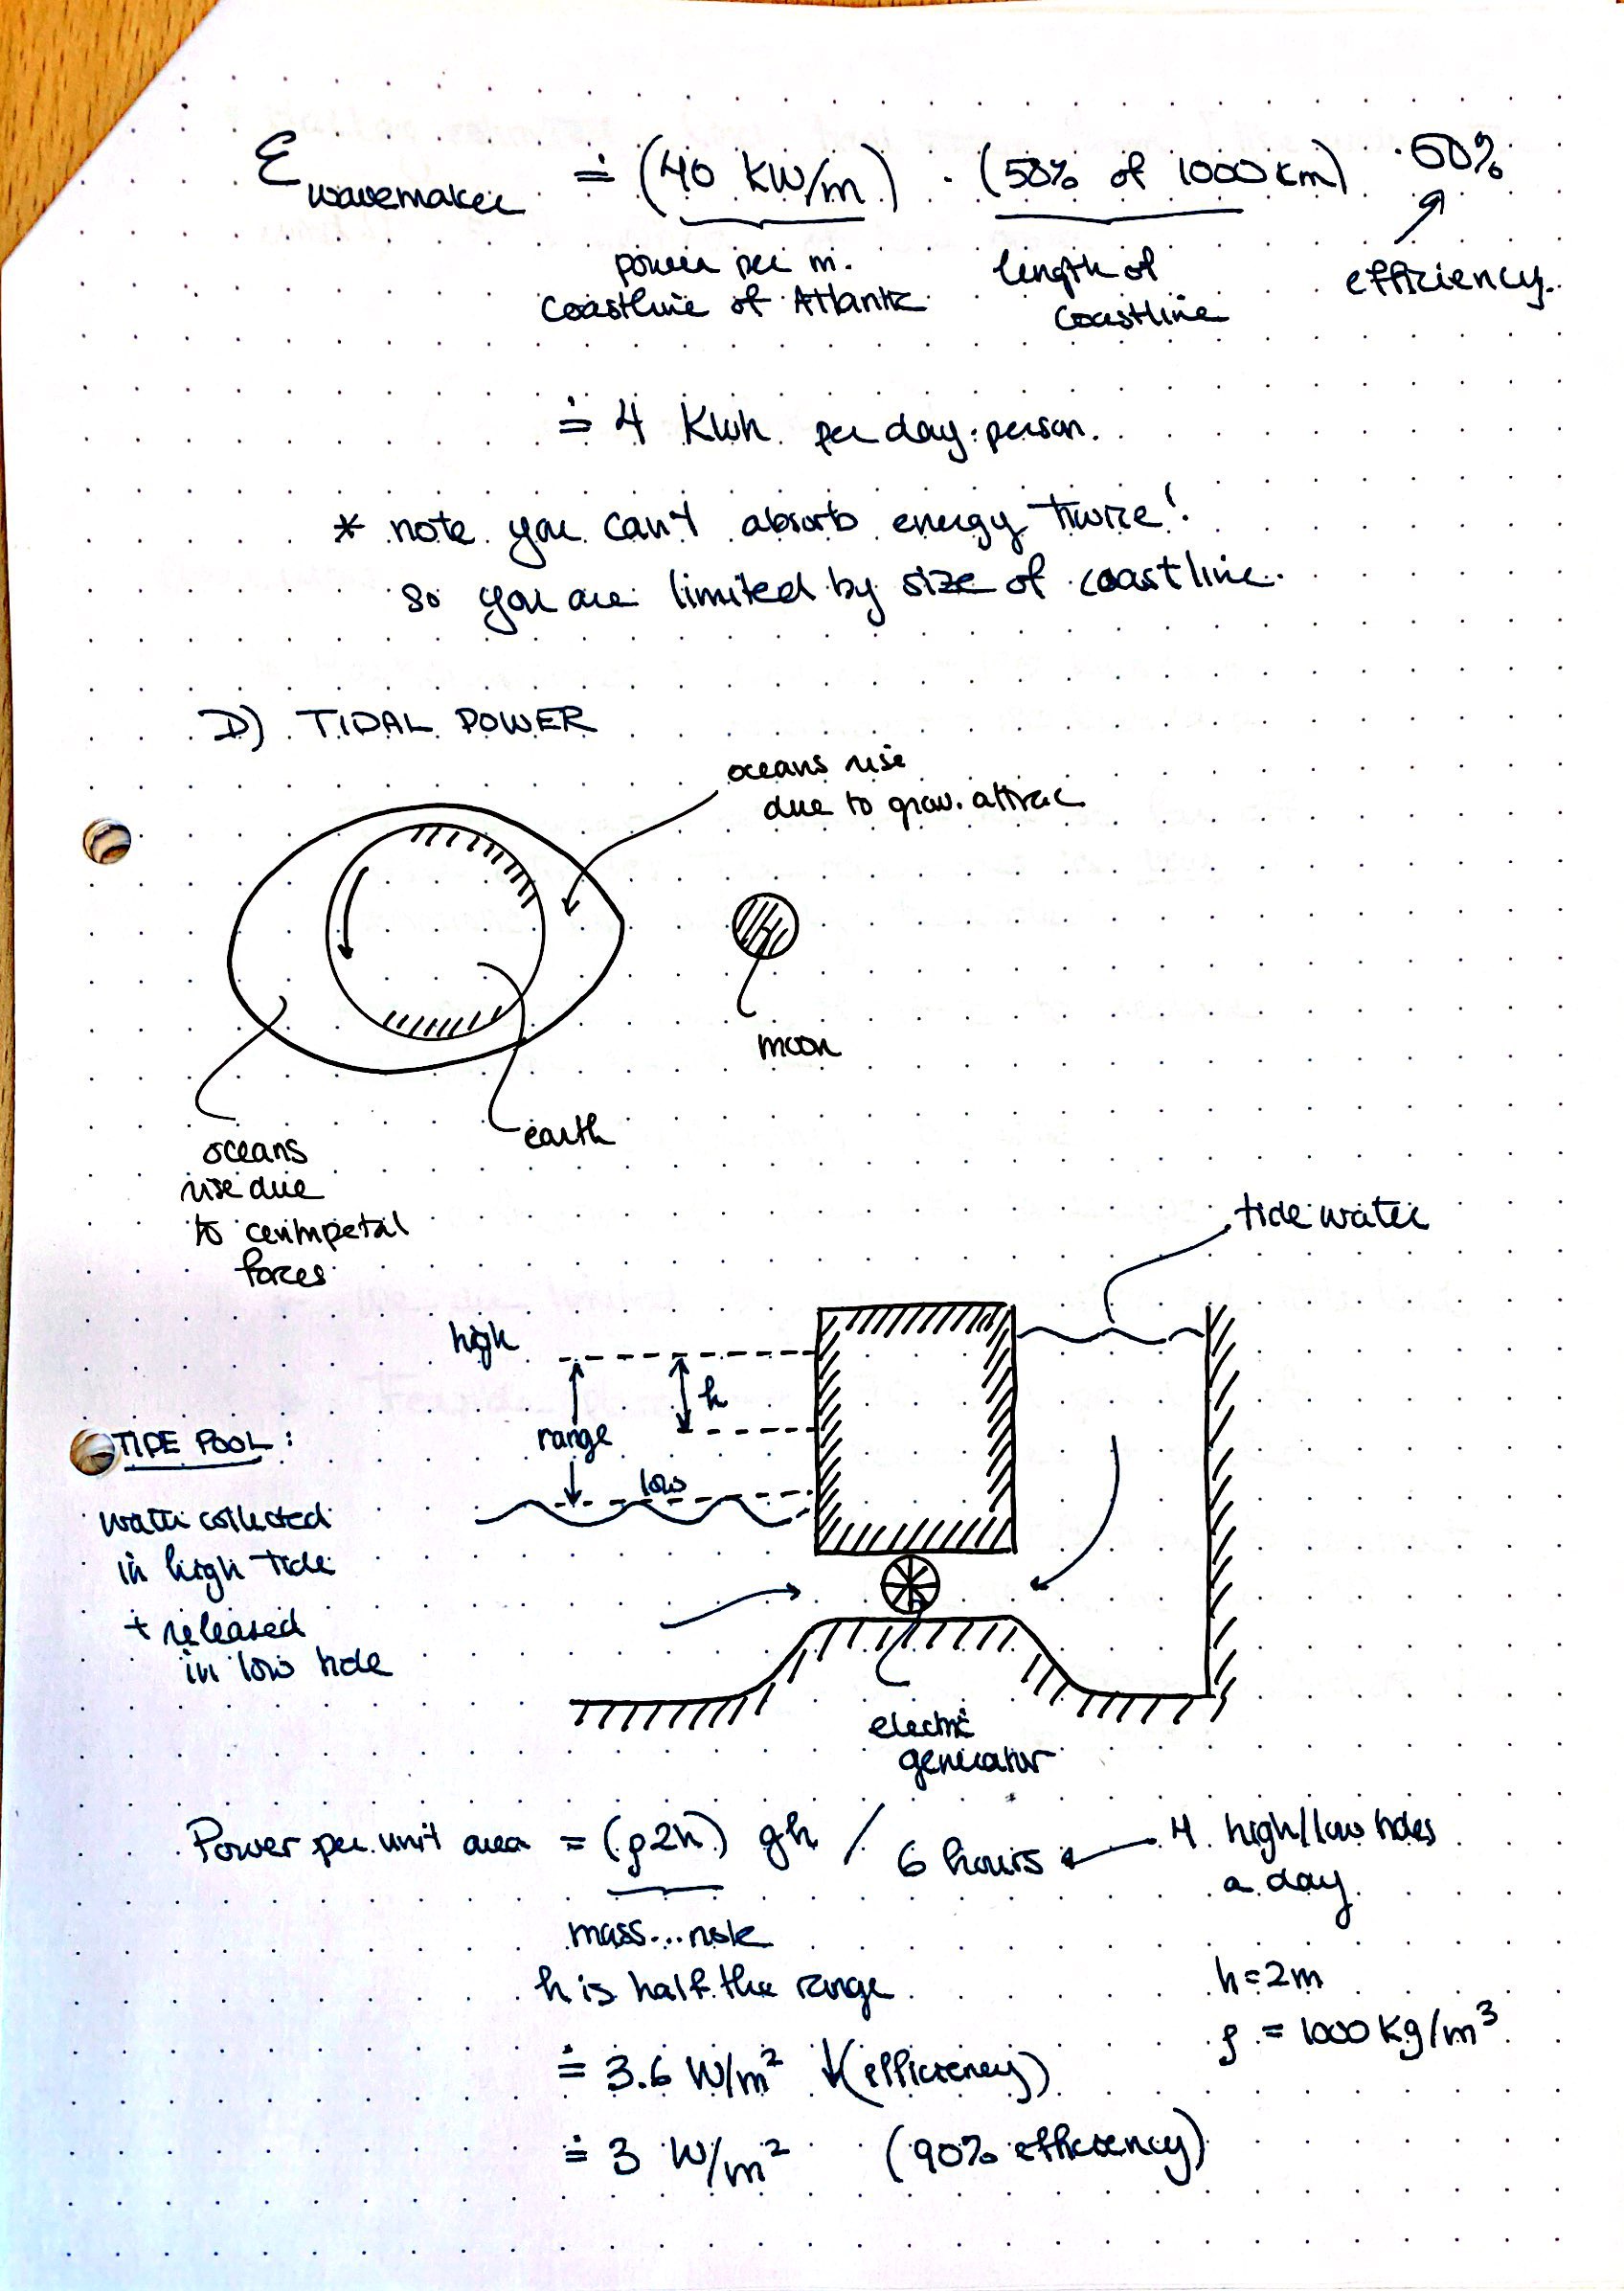 E wavemaker ≐ (40 kW/m) · (50% of 1000 km) · 50%
power per m. coastline of Atlantic
length of coastline
efficiency.
≐ 4 kWh per day·person.
* note you can't absorb energy twice!
so you are limited by size of coastline.
D) TIDAL POWER
oceans rise
due to grav. attrac
moon
earth
oceans
rise due
to centripetal
forces
tide water
high
h
range
low
TIDE POOL:
water collected
in high tide
+ released
in low tide
electric
generator
Power per unit area = (ρ2h) gh / 6 hours ← 4 high/low tides
a day
mass...
h is half the range
h=2m
ρ = 1000 kg/m³
≐ 3.6 W/m² (efficiency)
≐ 3 W/m² (90% efficiency)